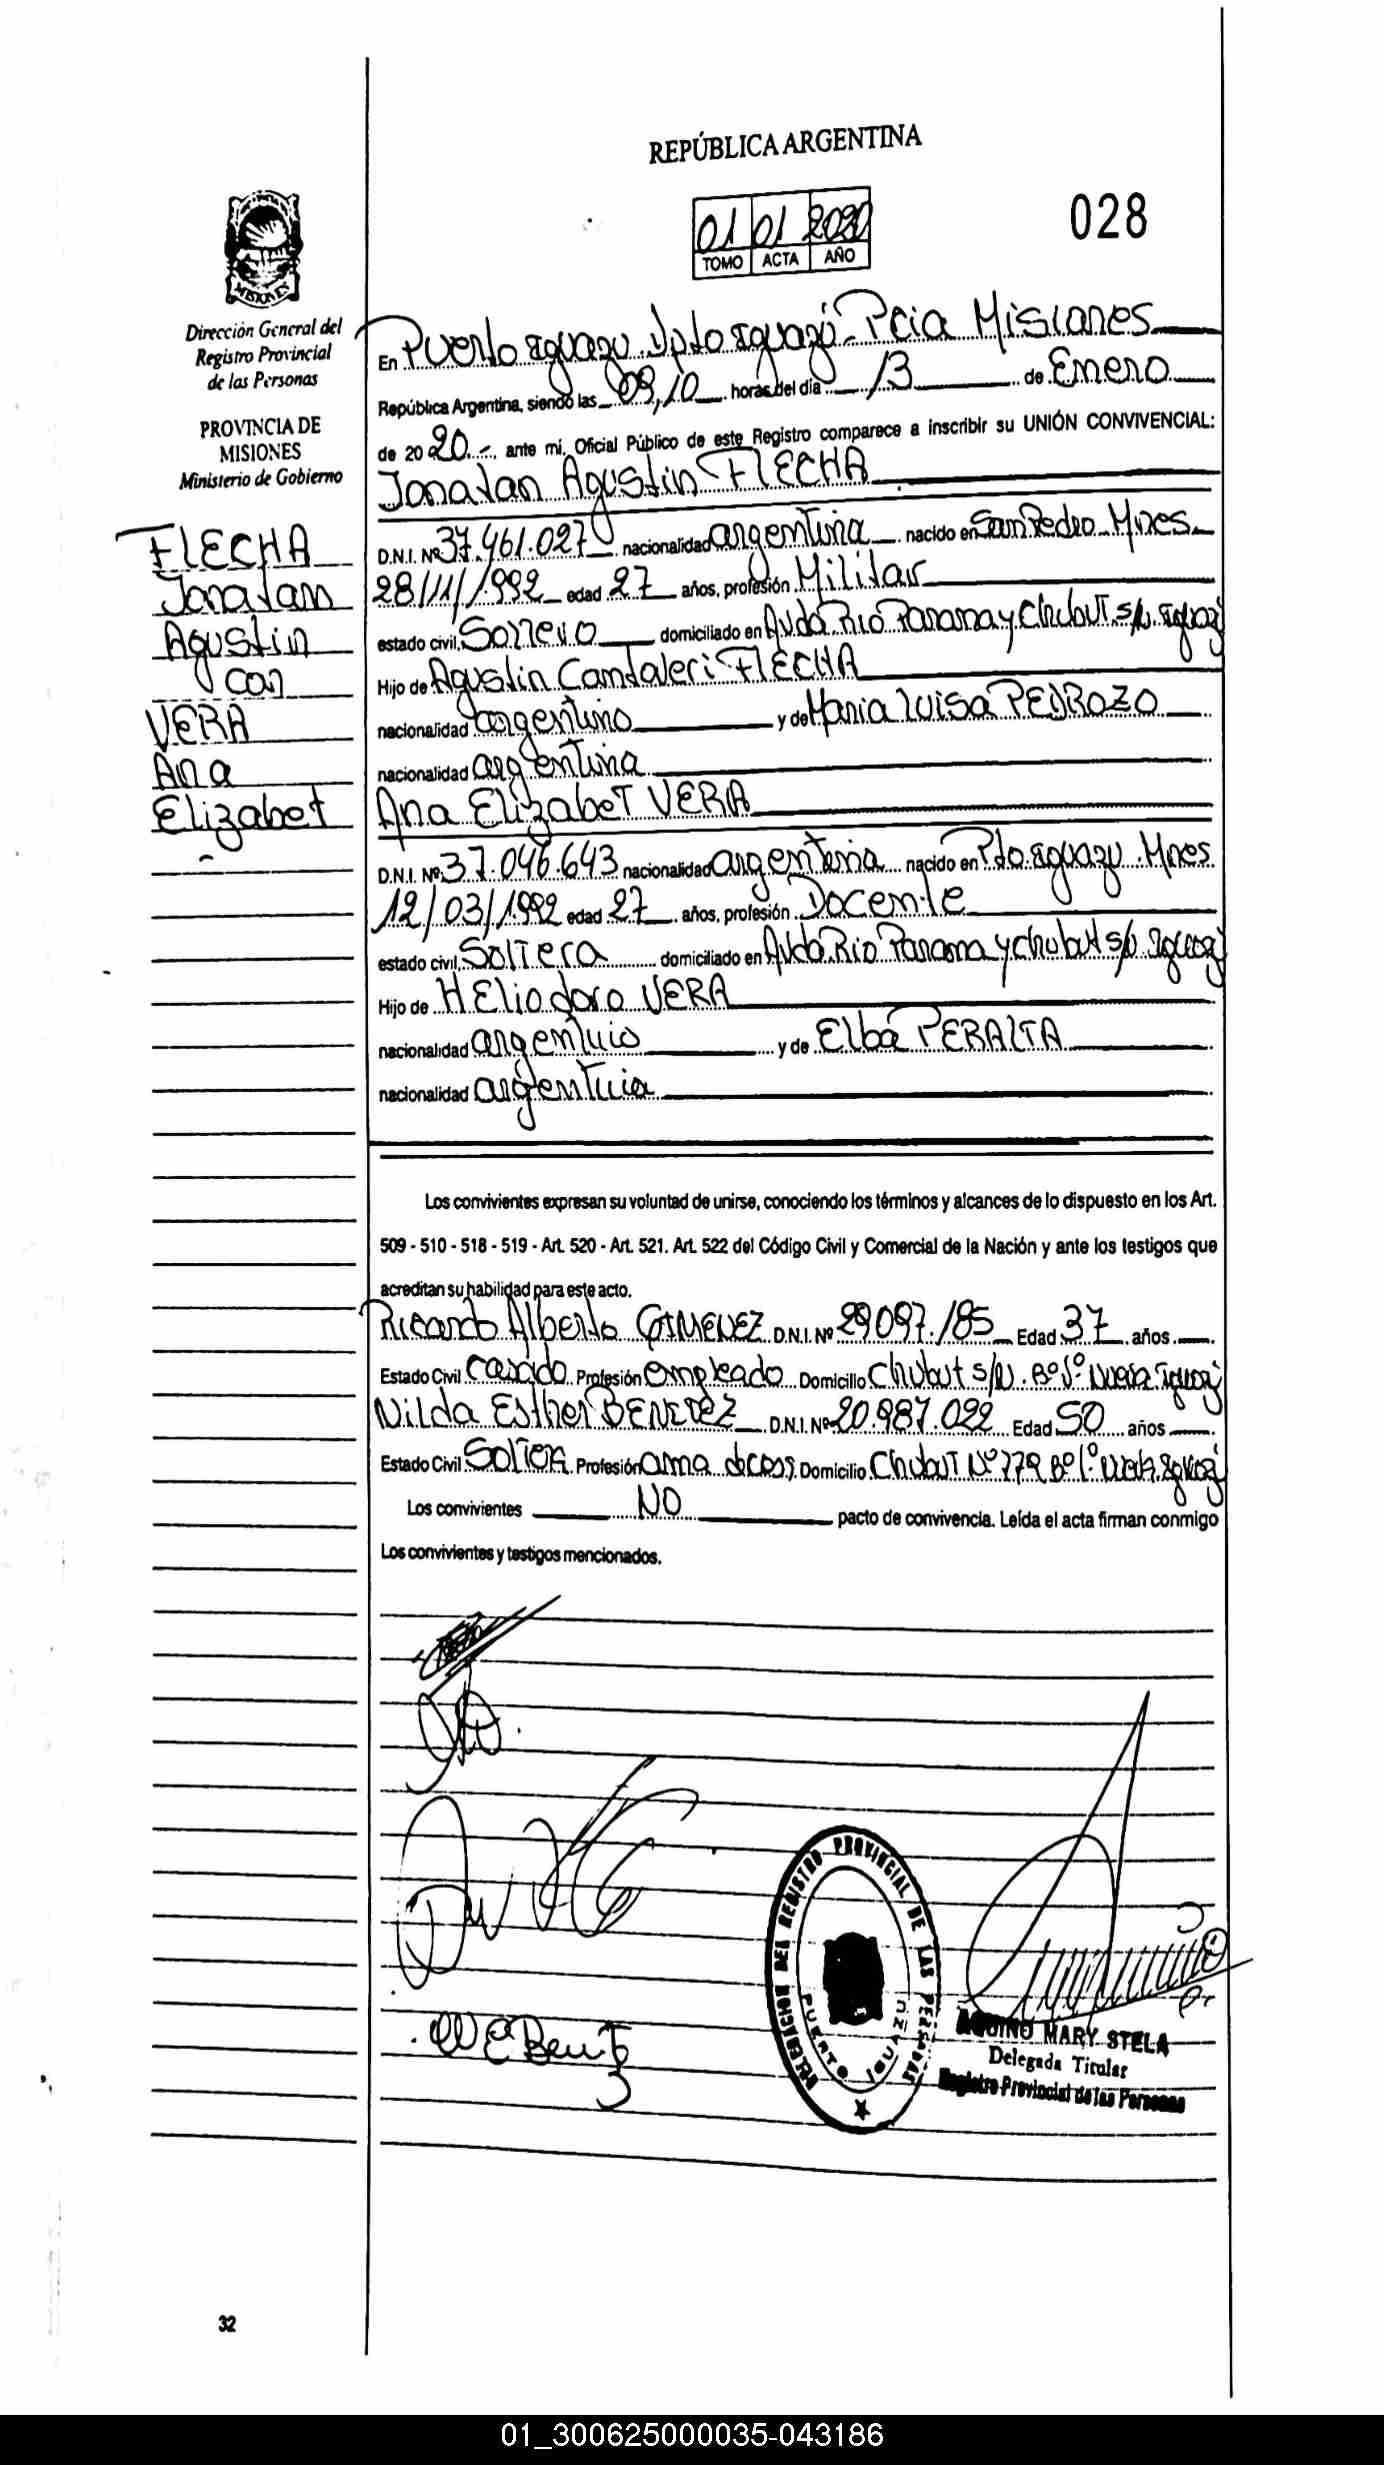 REPÚBLICA ARGENTINA
01 01 2020
TOMO ACTA AÑO
028
MISIONES
Dirección General del
Registro Provincial
de las Personas
PROVINCIA DE
MISIONES
Ministerio de Gobierno
FLECHA
Jonatan
Agustin
con
VERA
Ana
Elizabet
En Puerto Iguazu Dpto Iguazú - Pcia Misiones
República Argentina, siendo las 09,10 horas del día 13 de Enero
de 20 20.-, ante mí, Oficial Público de este Registro comparece a inscribir su UNIÓN CONVIVENCIAL:
Jonatan Agustin FLECHA
D.N.I. Nº 37.461.027 nacionalidad argentina nacido en San Pedro - Mnes
28/11/1992 edad 27 años, profesión Militar
estado civil, Soltero domiciliado en Avda Rio Parana y Chubut s/n. Iguazú
Hijo de Agustin Candaleri FLECHA
nacionalidad argentino y de Maria Luisa PEDROZO
nacionalidad argentina
Ana Elizabet VERA
D.N.I. Nº 37.046.643 nacionalidad argentina nacido en Pto. Iguazu. Mnes
12/03/1992 edad 27 años, profesión Docente
estado civil, Soltera domiciliado en Avda Rio Parana y Chubut s/n. Iguazú
Hijo de Heliodoro VERA
nacionalidad argentino y de Elba PERALTA
nacionalidad argentina
Los convivientes expresan su voluntad de unirse, conociendo los términos y alcances de lo dispuesto en los Art.
509 - 510 - 518 - 519 - Art. 520 - Art. 521. Art. 522 del Código Civil y Comercial de la Nación y ante los testigos que
acreditan su habilidad para este acto.
Ricardo Alberto GIMENEZ D.N.I. Nº 29097.185 Edad 37 años
Estado Civil Casado Profesión empleado Domicilio Chubut s/N. Bº Iguazú
Nilda Esther BENITEZ D.N.I. Nº 20.987.022 Edad 50 años
Estado Civil Soltera Profesión ama de casa Domicilio Chubut Nº 279 Bº Iguazú
Los convivientes NO pacto de convivencia. Leída el acta firman conmigo
Los convivientes y testigos mencionados.
N E Benitez
DELEGACION DEL REGISTRO PROVINCIAL DE LAS PERSONAS
PUERTO IGUAZU
AQUINO MARY STELA
Delegada Titular
Registro Provincial de las Personas
32
01_300625000035-043186